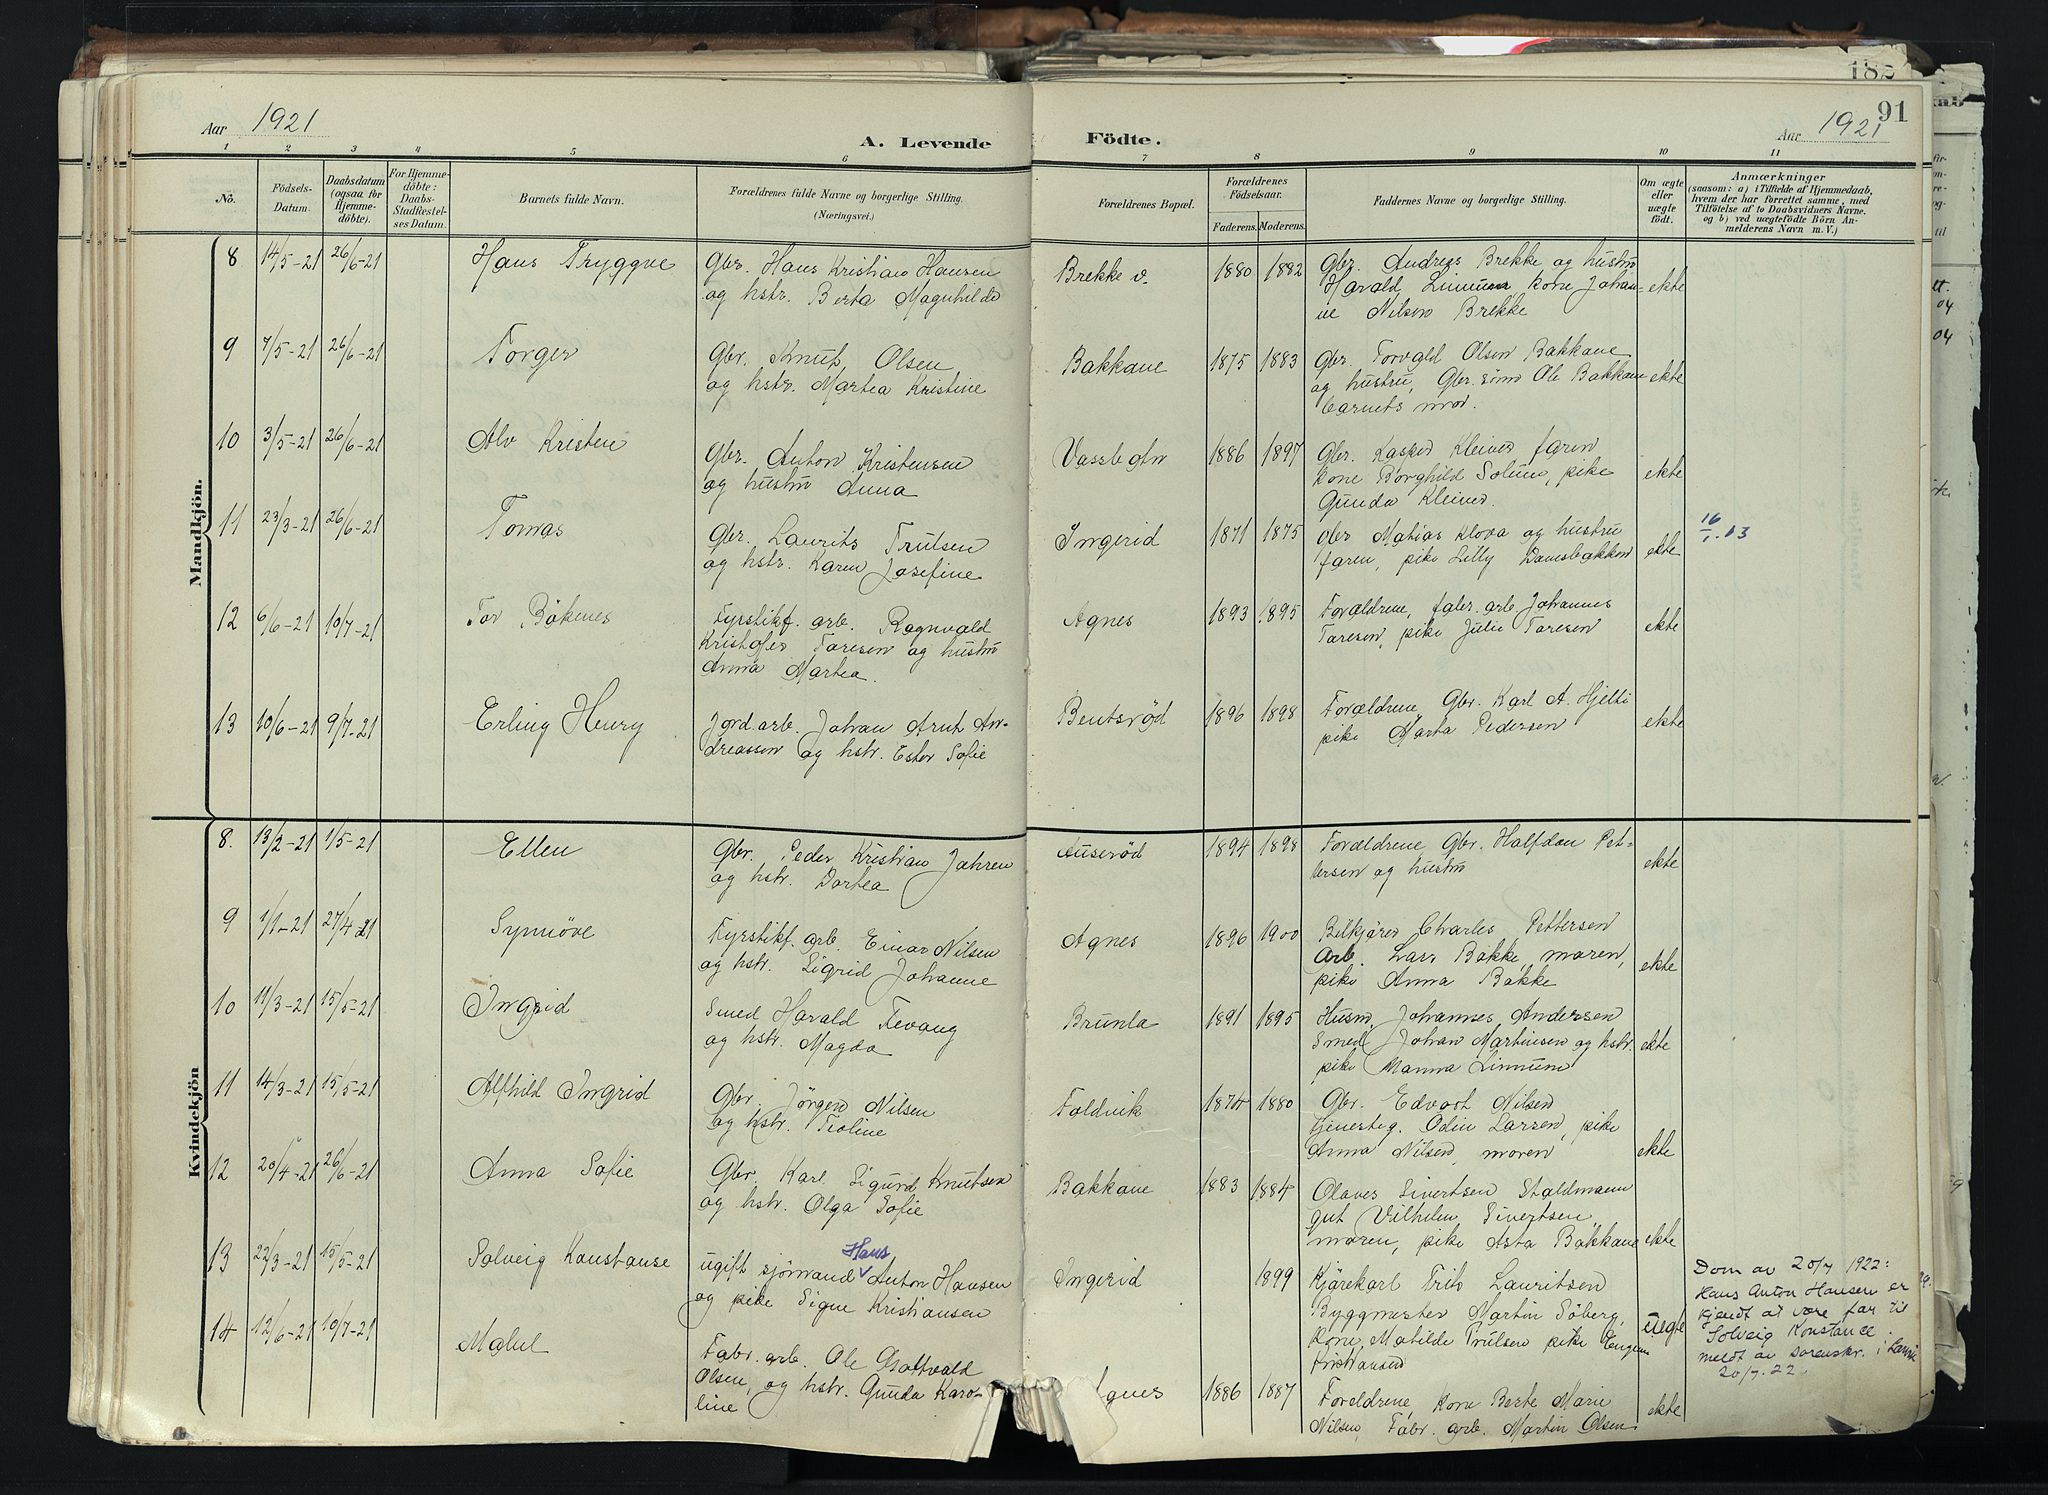 182
91
Aar 1921
A. Levende Födte.
Aar 1921
1 2 3 4 5 6 7 8 9 10 11
No.
Födsels-
Datum.
Daabsdatum
(ogsaa for
Hjemme-
döbte).
For Hjemme-
döbte:
Daabs-
Stadfestel-
ses Datum.
Barnets fulde Navn.
Forældrenes fulde Navne og borgerlige Stilling.
(Næringsvei.)
Forældrenes Bopæl.
Forældrenes
Födselsaar.
Faderens. Moderens.
Faddernes Navne og borgerlige Stilling.
Om ægte
eller
uægte
födt.
Anmærkninger
(saasom: a) i Tilfælde af Hjemmedaab,
hvem der har forrettet samme, med
Tilföielse af to Daabsvidners Navne,
og b) ved uægtefödte Börn An-
melderens Navn m. V.)
Mandkjön.
8 14/5-21 26/6-21 Hans Tryggve
Gbr. Hans Kristian Hansen
og hstr. Berta Magnhilde
Brekke v. 1880 1882
Gbr. Andreas Brekke og hustru
Harald Linnum, kone Johan-
ne Nilsen Brekke
ekte
9 7/5-21 26/6-21 Torger
Gbr. Knut Olsen
og hstr. Martea Kristine
Bakkane 1875 1883
Gbr. Torvald Olsen Bakkane
og hustru, Gbr. sönn Ole Bakkane
barnets mor.
ekte
10 3/5-21 26/6-21 Alv Kristen
Gbr. Anton Kristensen
og hustru Anna
Vassbotn 1886 1897
Gbr. Kasper Kleiver faren
kone Borghild Solum, pike
Gunda Kleiver.
ekte
11 23/3-21 26/6-21 Tomas
Gbr. Laurits Trulsen
og hstr. Karen Josefine
Ingerid 1871 1875
Gbr Matias Klova og hustru
faren, pike Lilly Damsbakken
ekte
12 6/6-21 10/7-21 Tor Bökenes
Fyrstikf. arb. Ragnvald
Kristofer Taresen og hustru
Anna Martea.
Agnes 1893 1895
Forældrene, fabr. arb. Johannes
Taresen, pike Julie Taresen
ekte
13 10/6-21 9/7-21 Erling Henry
Jord.arb. Johan Arnt An-
dreassen og hstr. Ester Sofie
Bentsröd 1896 1898
Forældrene, Gbr. Karl A. Hjelti
pike Marta Pedersen
ekte
Kvindekjön
8. 13/2-21 1/5-21 Ellen
Gbr. Peder Kristian Jahren
og hstr. Dortea
Auseröd 1894 1898
Forældrene Gbr. Halfdan Pet-
tersen og hustru
ekte
9 1/1-21 27/4 21 Synnöve
Fyrstikf. arb. Einar Nilsen
og hstr. Sigrid Johanne
Agnes 1896 1900
Bilkjörer Charles Pettersen
Arb. Lars Bakke, moren,
pike Anna Bakke
ekte
10 11/3-21 15/5-21 Ingrid
Smed Harald Fevang
og hstr. Magda
Brunla 1891 1895
Husm. Johannes Andersen
Smed Johan Martinsen og hstr.
pike Manna Linnum
ekte
11 14/3-21 15/5-21 Alfhild Ingrid
Gbr. Jörgen Nilsen
og hstr. Teoline
Foldvik 1874 1880
Gbr. Edvart Nilsen
tjenestg. Odin Larsen, pike
Anna Nilsen, moren
ekte
12 20/4-21 26/6-21 Anna Sofie
Gbr. Karl Sigurd Knutsen
og hstr. Olga Sofie
Bakkane 1883 1884
Olaves Sivertsen Staldmann
gut Vilhelm Sivertsen,
moren, pike Asta Bakkane
ekte
13 22/3-21 15/5-21 Solveig Konstanse
Hans
ugift sjömand Anton Hansen
og pike Signe Kristiansen
Ingerid 1899
Kjörekarl Frits Lauritsen
Byggmester Martin Söberg,
Kone Matilde Trulsen pike
Kristiansen
uegte
Dom av 20/7 1922:
Hans Anton Hansen er
kjendt at være far til
Solveig Konstance
meldt av sorenskr. i Larvik
20/7. 22.
14 12/6-21 10/7-21 Mabel
Fabr. arb. Ole Gottvald
Olsen, og hstr. Gunda Karo-
line
Agnes 1886 1887
Foreldrene, Kone Berte Marie
Nilsen, Fabr. arb. Martin Olsen
ekte